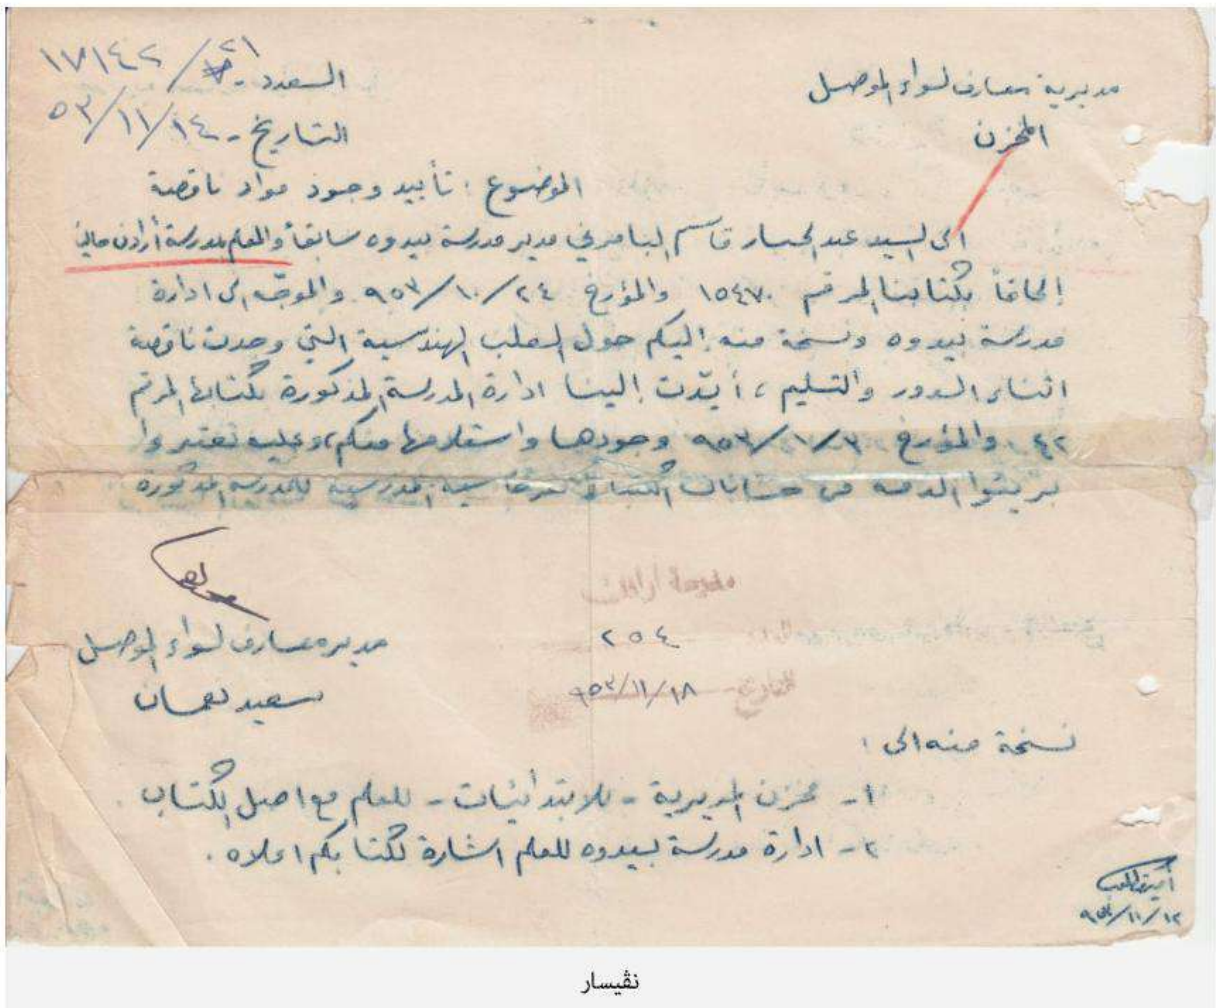 مديرية معارف لواء الموصل
العدد - ٢١/ ١٧١٤٢
المخزن
التاريخ - ٥٣/١١/١٤
الموضوع : تأييد وجود مواد ناقصة
الى السيد عبد الجبار قاسم البامرني مدير مدرسة بيدوه سابقاً والمعلم بمدرسة أرادن حالياً
إلحاقاً بكتابنا المرقم ١٥٤٧٠ والمؤرخ ٩٥٣/١٠/٢٤ والموجه الى ادارة
مدرسة بيدوه ونسخة منه إليكم حول العلب الهندسية التي وجدت ناقصة
اثناء الدور والتسليم ، أيدت إلينا ادارة المدرسة المذكورة بكتابها المرقم
٤٢ والمؤرخ وجودها واستلامها منكم، وعليه تعتبروا
بريئوا الذمة من حسابات المدرسية للمدرسة المذكورة
مدرسة أرادن
٢٥٤
مدير معارف لواء الموصل
التاريخ - ٩٥٣/١١/١٨
سعيد نعمان
نسخة منه الى :
١- مخزن المديرية - للابتدائيات - للعلم مع اصل الكتاب .
٢- ادارة مدرسة بيدوه للعلم اشارة لكتابكم اعلاه .
٩٥٣/١١/١٢
نڤيسار